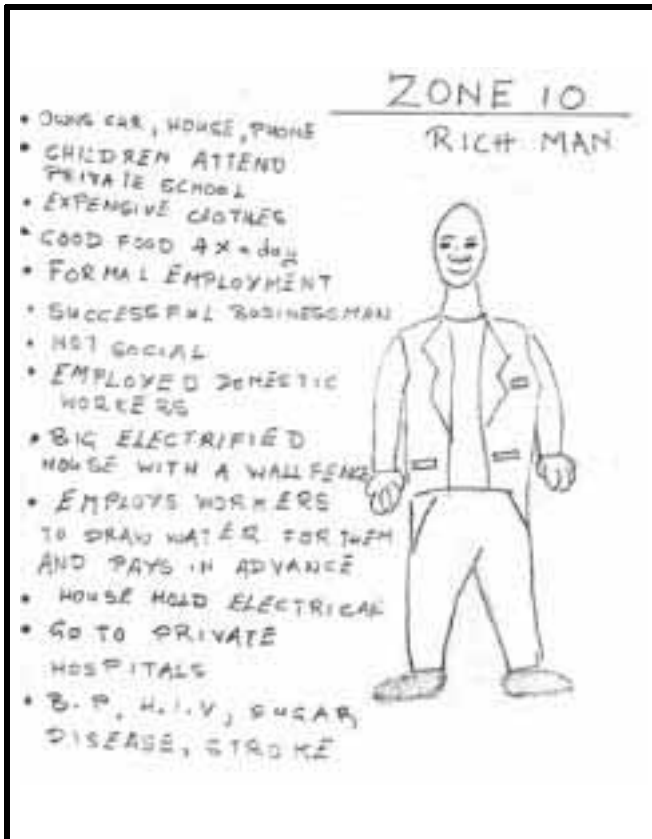 ZONE 10
RICH MAN
• OWNS CAR, HOUSE, PHONE
• CHILDREN ATTEND
PRIVATE SCHOOL
• EXPENSIVE CLOTHES
• GOOD FOOD 4 X a day
• FORMAL EMPLOYMENT
• SUCCESSFUL BUSINESSMAN
• NOT SOCIAL
• EMPLOYED DOMESTIC
WORKERS
• BIG ELECTRIFIED
HOUSE WITH A WALL FENCE
• EMPLOYS WORKERS
TO DRAW WATER FOR THEM
AND PAYS IN ADVANCE
• HOUSE HOLD ELECTRICAL
• GO TO PRIVATE
HOSPITALS
• B.P, H.I.V, SUGAR
DISEASE, STROKE